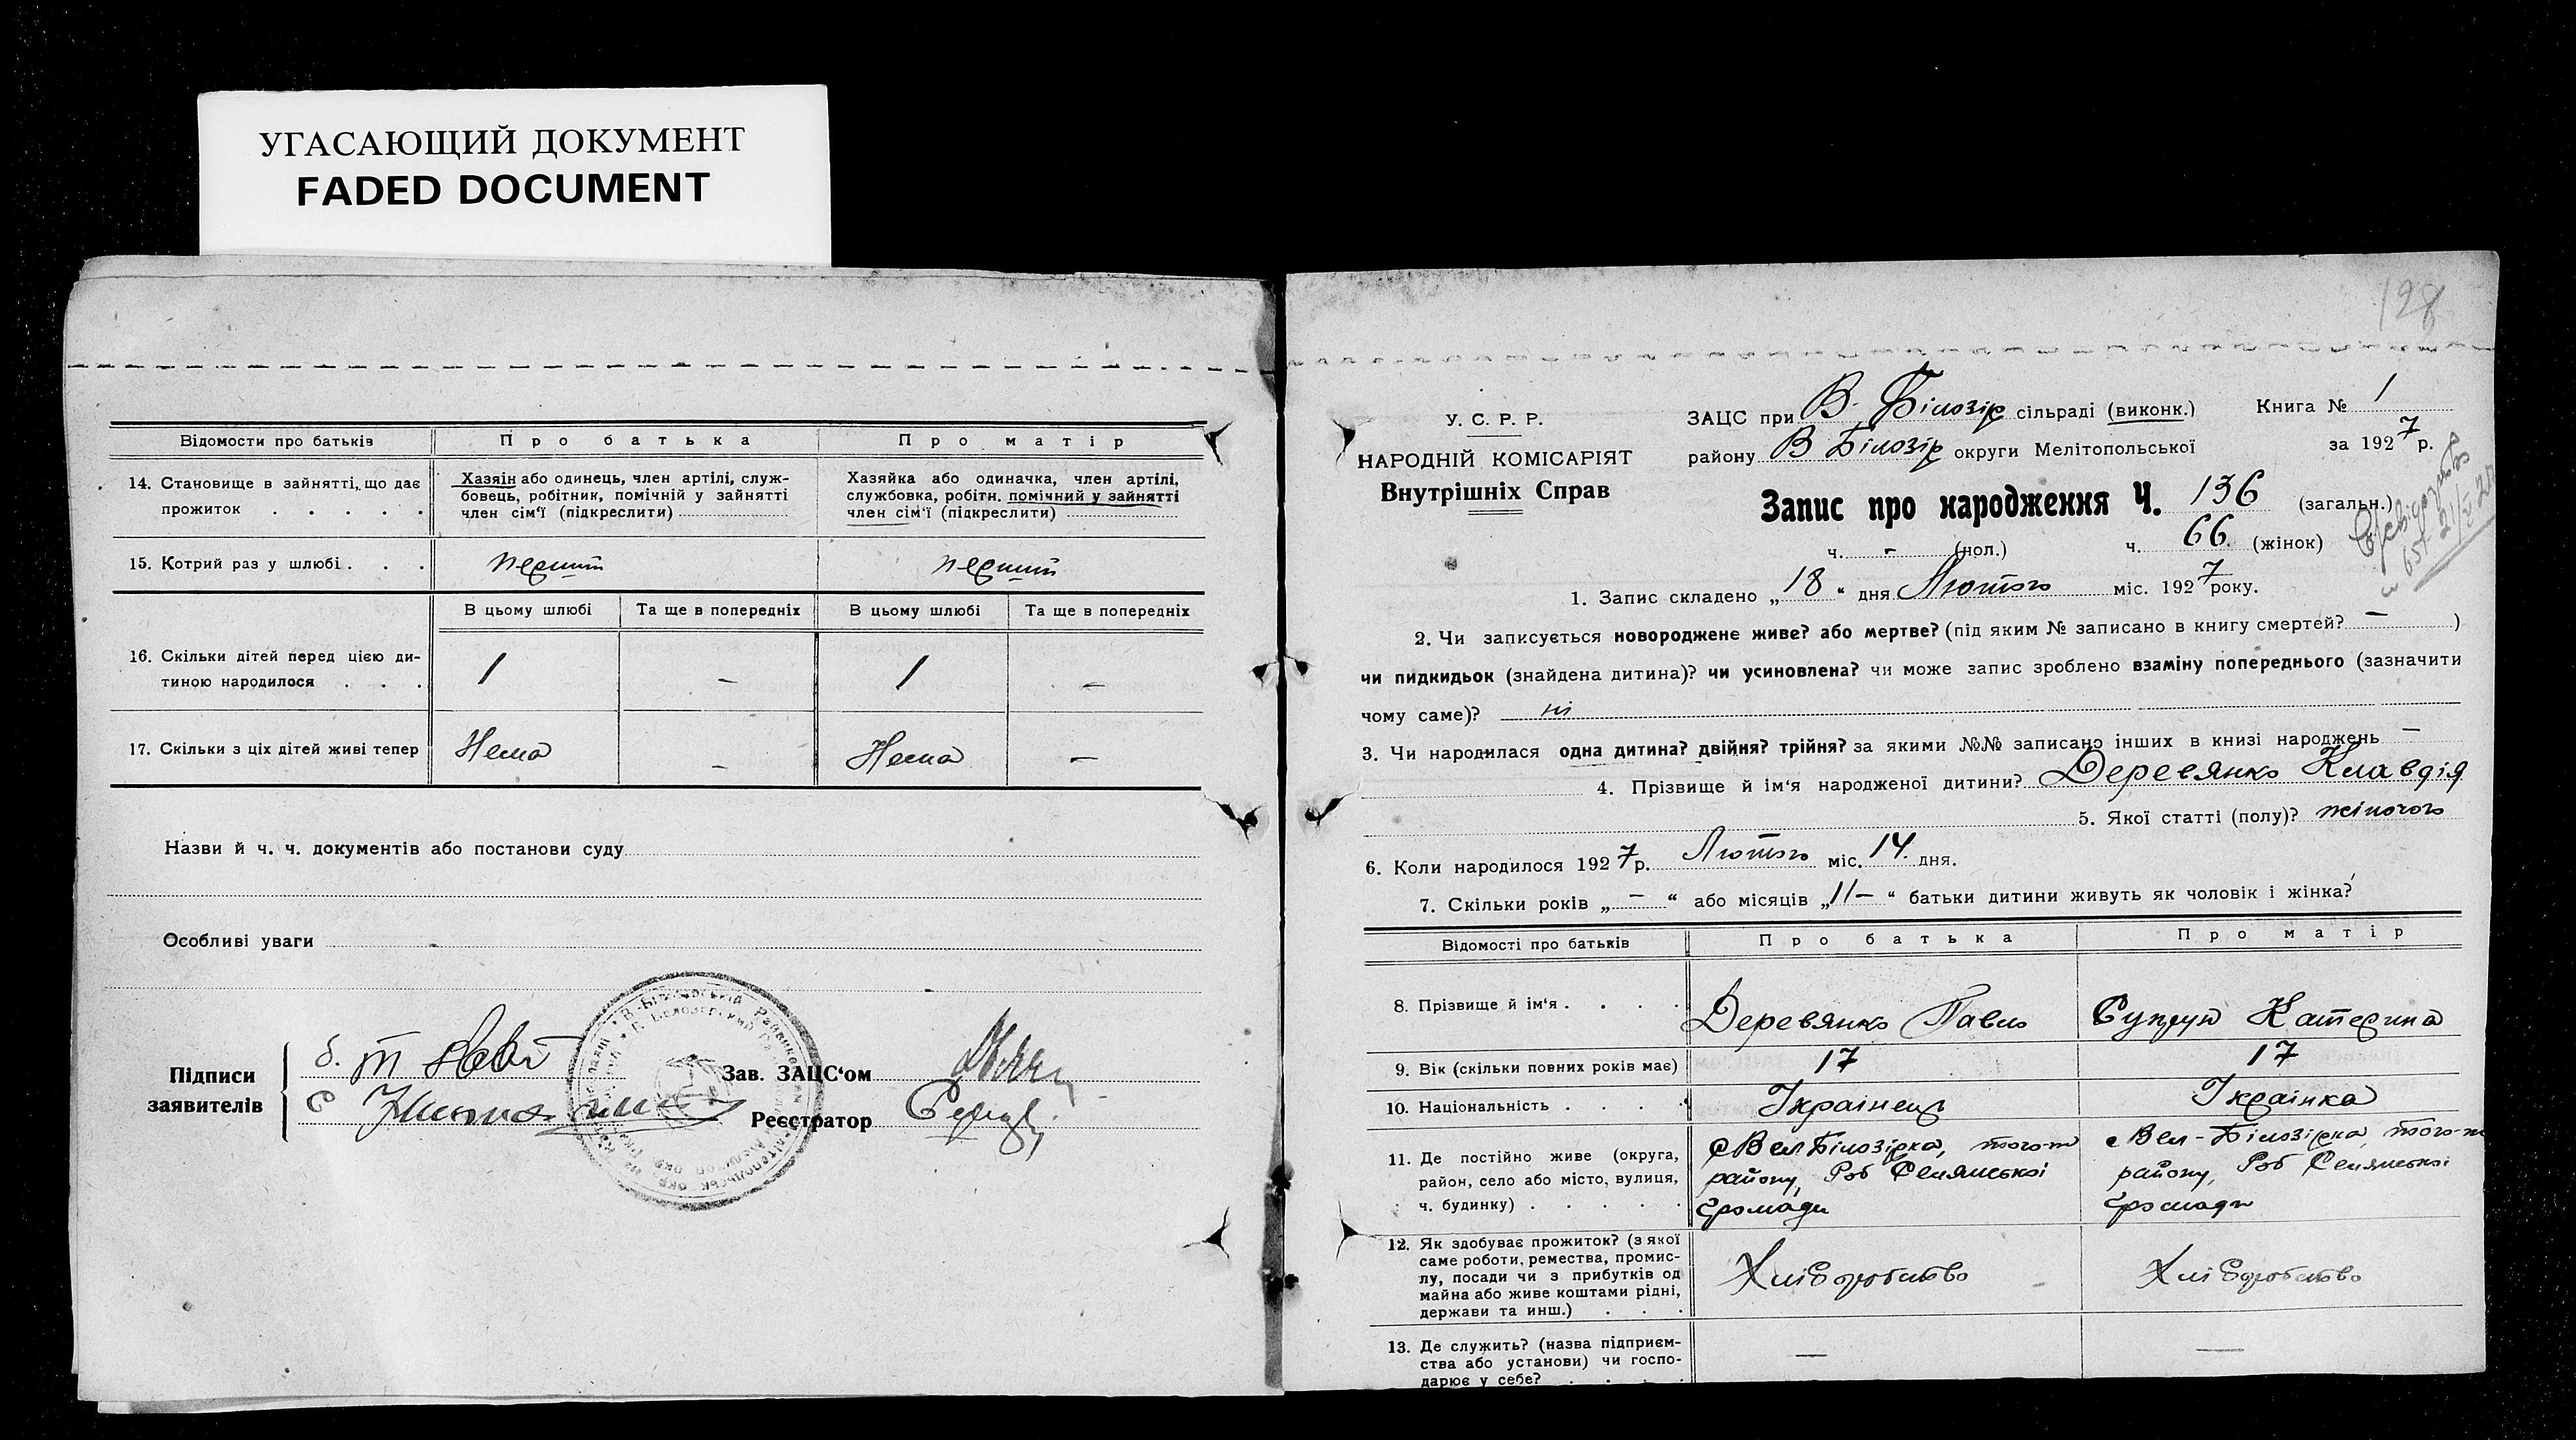 УГАСАЮЩИЙ ДОКУМЕНТ
FADED DOCUMENT
Відомости про батьків
Про батька
Про матір
14. Становище в зайнятті, що дає прожиток . . . . .
Хазяін або одинець, член артілі, служ-
бовець, робітник, помічній у зайнятті
член сім'ї (підкреслити)
Хазяйка або одиначка, член артілі,
службовка, робітн. помічний у зайнятті
член сім'ї (підкреслити)
15. Котрий раз у шлюбі . . .
перший
перший
В цьому шлюбі
Та ще в попередніх
В цьому шлюбі
Та ще в попередніх
16. Скільки дітей перед цією ди-
тиною народилося . . .
1
–
1
–
17. Скільки з ціх дітей живі тепер
Нема
–
Нема
–
Назви й ч. ч. документів або постанови суду
Особливі уваги
Підписи
заявителів
Зав. ЗАЦС'ом
Реєстратор
128
У. С. Р. Р.
НАРОДНІЙ КОМІСАРІЯТ
Внутрішніх Справ
ЗАЦС при В. Білозір сільраді (виконк.)
Книга № 1
району В Білозір округи Мелітопольської
за 1927 р.
Запис про народження Ч. 136 (загальн.)
ч. - (чол.) ч. 66. (жінок)
1. Запис складено „18“ дня Лютого міс. 1927 року.
2. Чи записується новороджене живе? або мертве? (під яким № записано в книгу смертей? – )
чи пидкидьок (знайдена дитина)? чи усиновлена? чи може запис зроблено взаміну попереднього (зазначити
чому саме)? ні
3. Чи народилася одна дитина? двійня? трійня? за якими №№ записано інших в книзі народжень –
4. Прізвище й ім'я народженої дитини? Деревянко Клавдія
5. Якої статті (полу)? жіночого
6. Коли народилося 1927 р. Лютого міс. 14. дня.
7. Скільки років „ – “ або місяців „11–“ батьки дитини живуть як чоловік і жінка?
Відомості про батьків
Про батька
Про матір
8. Прізвище й ім'я . . . .
Деревянко Павло
Супрун Катерина
9. Вік (скільки повних років має)
17
17
10. Національність . . . .
Українець
Українка
11. Де постійно живе (округа,
район, село або місто, вулиця,
ч. будинку) . . . . .
с Вел Білозірка, того-ж
району, Роб Селянської
громади
с Вел-Білозірка, того-ж
району, Роб Селянської
громади
12. Як здобуває прожиток? (з якої
саме роботи, ремества, промис-
лу, посади чи з прибутків од
майна або живе коштами рідні,
держави та инш.) . . .
Хліборобство
Хліборобство
13. Де служить? (назва підприєм-
ства або установи) чи госпо-
дарює у себе? . . . .
—
—